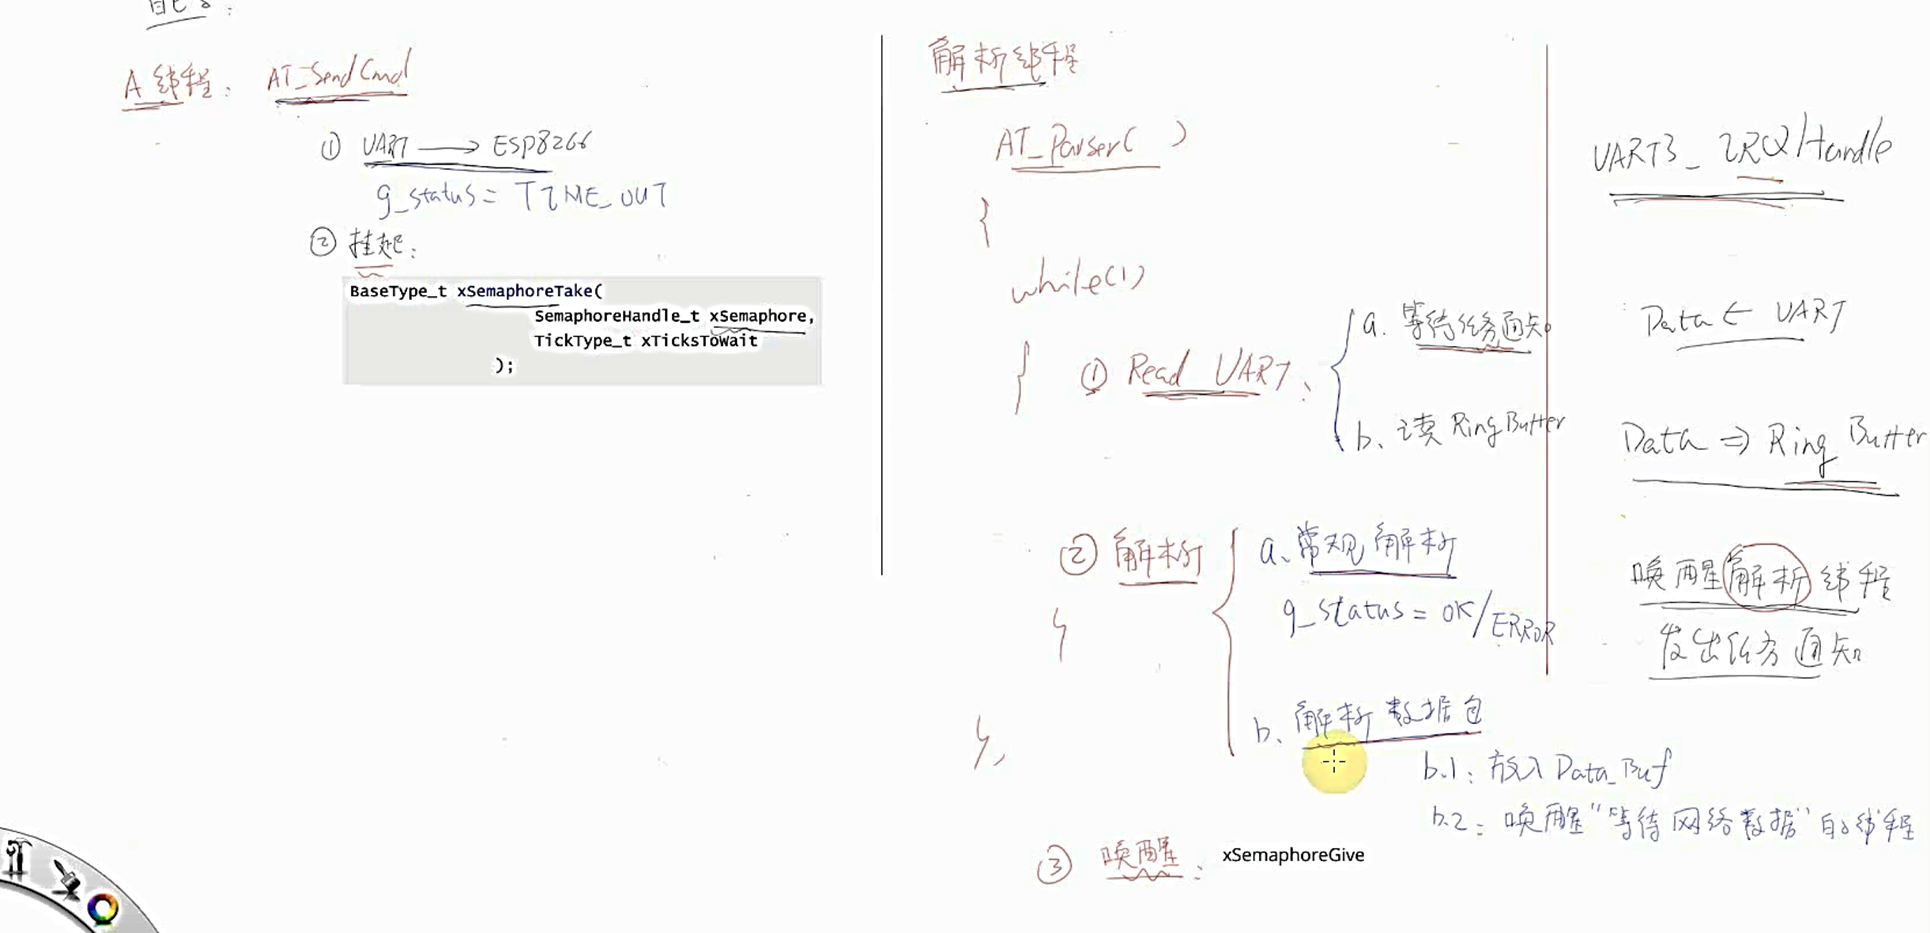 A线程: AT_SendCmd
① UART → ESP8266
g_status = TIME_OUT
② 挂起:
BaseType_t xSemaphoreTake(
SemaphoreHandle_t xSemaphore,
TickType_t xTicksToWait
);
解析线程
AT_Parser( )
{
while(1)
{
① Read UART:
a. 等待任务通知
b、读 RingBuffer
② 解析
a、常规解析
g_status = OK/ERROR
b、解析数据包
b.1: 放入 Data_Buf
b.2: 唤醒“等待网络数据”的线程
}
},
③ 唤醒: xSemaphoreGive
UART3_IRQHandle
Data ← UART
Data ⇒ Ring Buffer
唤醒解析线程
发出任务通知